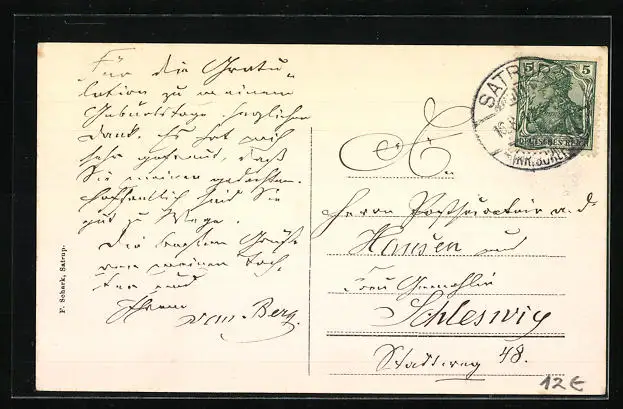 Für die Gratu-
lation zu meinem
Geburtstage herzlichen
Dank. Es hat mich
sehr gefreut, daß
Sie meiner gedachten.
Hoffentlich sind Sie
gut zu Wege.
Die besten Grüße
von meinen Töch-
tern und
Ihrem
van Berg.
F. Schack, Satrup.
SATRUP
5 5
DEUTSCHES REICH
An
Herrn Postdirektor a. D.
Hansen und
Frau Gemahlin
Schleswig
Stadtweg 48.
12€